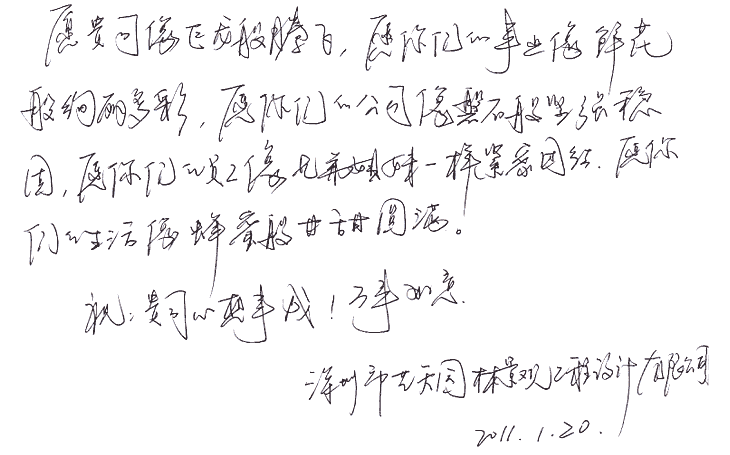 愿贵司像巨龙般腾飞，愿你们的事业像鲜花
般绚丽多彩，愿你们的公司像磐石般坚强稳
固，愿你们的员工像兄弟姐妹一样紧密团结．愿你
们的生活像蜂蜜般甘甜圆满。
祝：贵司心想事成！万事如意．
深圳市艺天园林景观工程设计有限公司
2011.1.20.